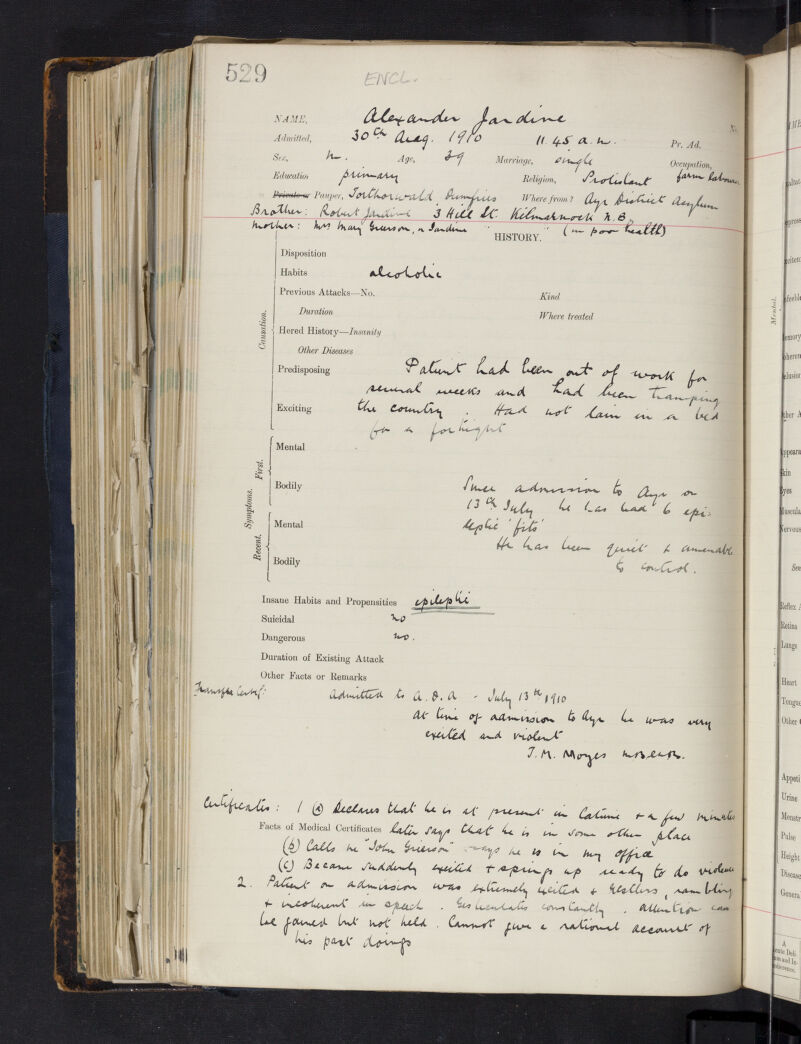 529
ENCL.
NAME, Alexander Jardine No.
Admitted, 30th Aug. 1910 11.45 a.m. Pr. Ad.
Sex, M. Age, 39 Marriage, single Occupation,
Education primary Religion, Protestant farm labourer
Private or Pauper, Torthorwald Dumfries Where from? Ayr District Asylum
Brother: Robert Jardine 3 Hill St Kilmarnock N.B.
Mother: Mrs Mary Grierson, or Jardine " " (in poor health)
HISTORY.
Disposition
Habits alcoholic
Previous Attacks—No. Kind
Duration Where treated
Causation.
Hered History—Insanity
Other Diseases
Predisposing Patient had been out of work for
several weeks and had been tramping
Exciting the country. Had not lain in a bed
for a fortnight
Symptoms.
First.
Mental
Bodily Since admission to Ayr on
13th July he has had 6 epi-
Recent.
Mental leptic 'fits'
He has been quiet & amenable
Bodily to control.
Insane Habits and Propensities epileptic
Suicidal no
Dangerous no.
Duration of Existing Attack
Other Facts or Remarks
Transfer Certif: Admitted to A.D.A - July 13th 1910
At time of admission to Ayr he was very
excited and violent
J. M. Moyes
Certificates: 1 (a) Declares that he is at present in Catrine & a few minutes
Facts of Medical Certificates later says that he is in some other place
(b) Calls me "John Grierson" says he is in my office
(c) Became suddenly excited & springs up ready to do violence
2. Patient on admission was extremely excited & restless, rambling
& incoherent in speech. Gesticulates constantly. Attention can
be gained but not held. Cannot give a rational account of
his past doings